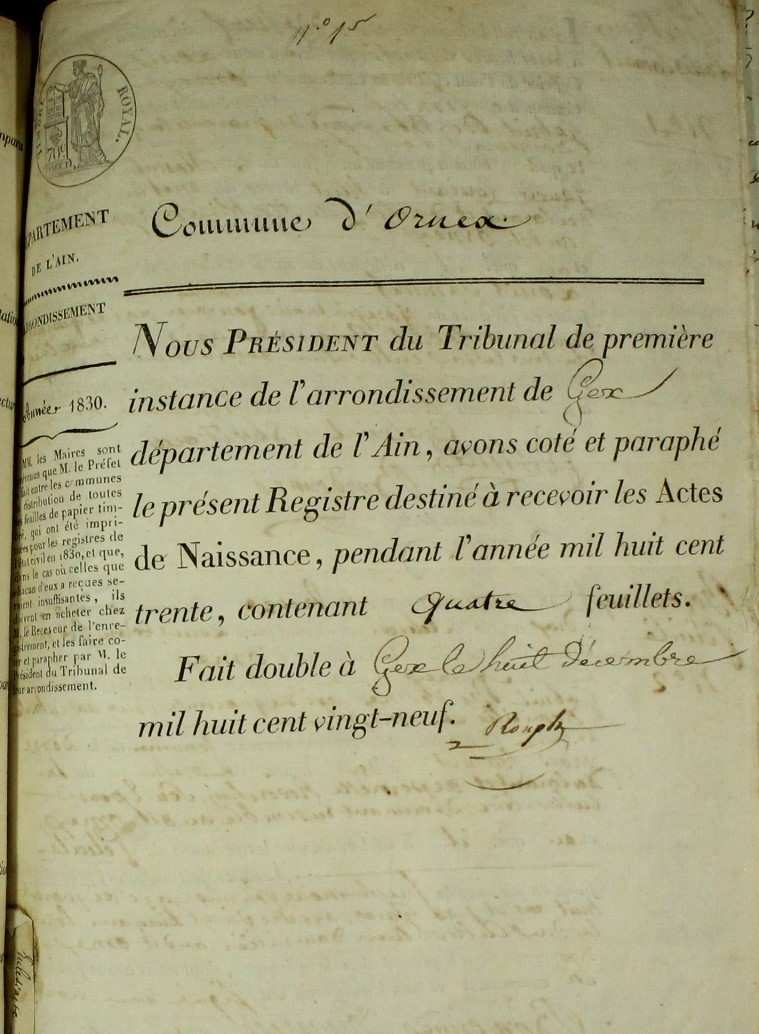 N.º 15
ROYAL.
Commune d'Ornex.
DÉPARTEMENT
DE L'AIN.
ARRONDISSEMENT
Année 1830.
MM. les Maires sont
que M. le Préfet
entre les communes
distribution de toutes
feuilles de papier tim-
qui ont été impri-
pour les registres de
civil en 1830, et que,
le cas où celles que
d'eux a reçues se-
insuffisantes, ils
en acheter chez
le Receveur de l'enre-
et les faire co-
et parapher par M. le
Président du Tribunal de
arrondissement.
NOUS PRÉSIDENT du Tribunal de première
instance de l'arrondissement de Gex
département de l'Ain, avons coté et paraphé
le présent Registre destiné à recevoir les Actes
de Naissance, pendant l'année mil huit cent
trente, contenant quatre feuillets.
Fait double à Gex le huit Décembre
mil huit cent vingt-neuf.